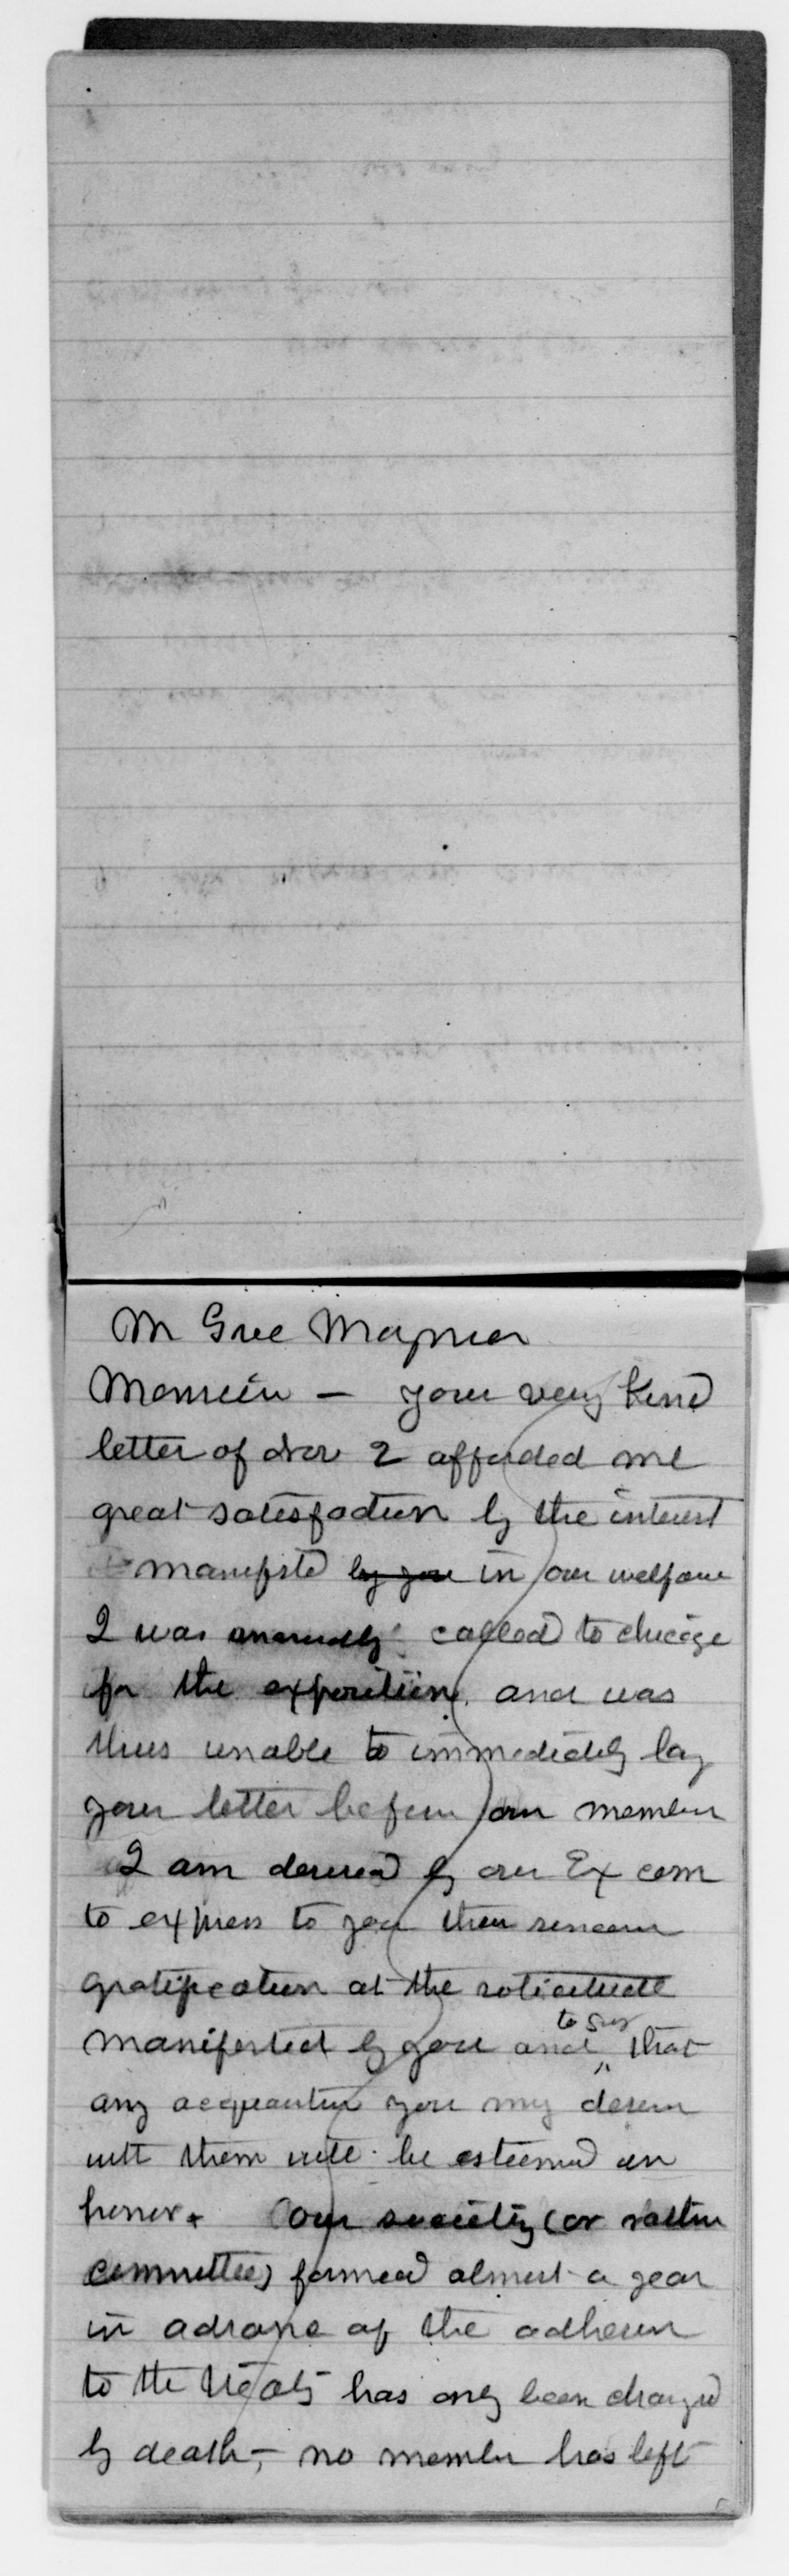 M Gve Moynier
Monsieur — your very kind
letter of Nov 2 afforded me
great satisfaction by the interest
manifested by you in our welfare
I was called to Chicago
for the exposition, and was
thus unable to immediately lay
your letter before our members
I am desired by our Ex com
to express to you their sincere
gratification at the solicitude
manifested by you and to say that
any acquaintance you may desire
with them will be esteemed an
honor. Our society (or rather
committee) formed almost a year
in advance of the adhesion
to the treaty has only been changed
by death, — no member has left